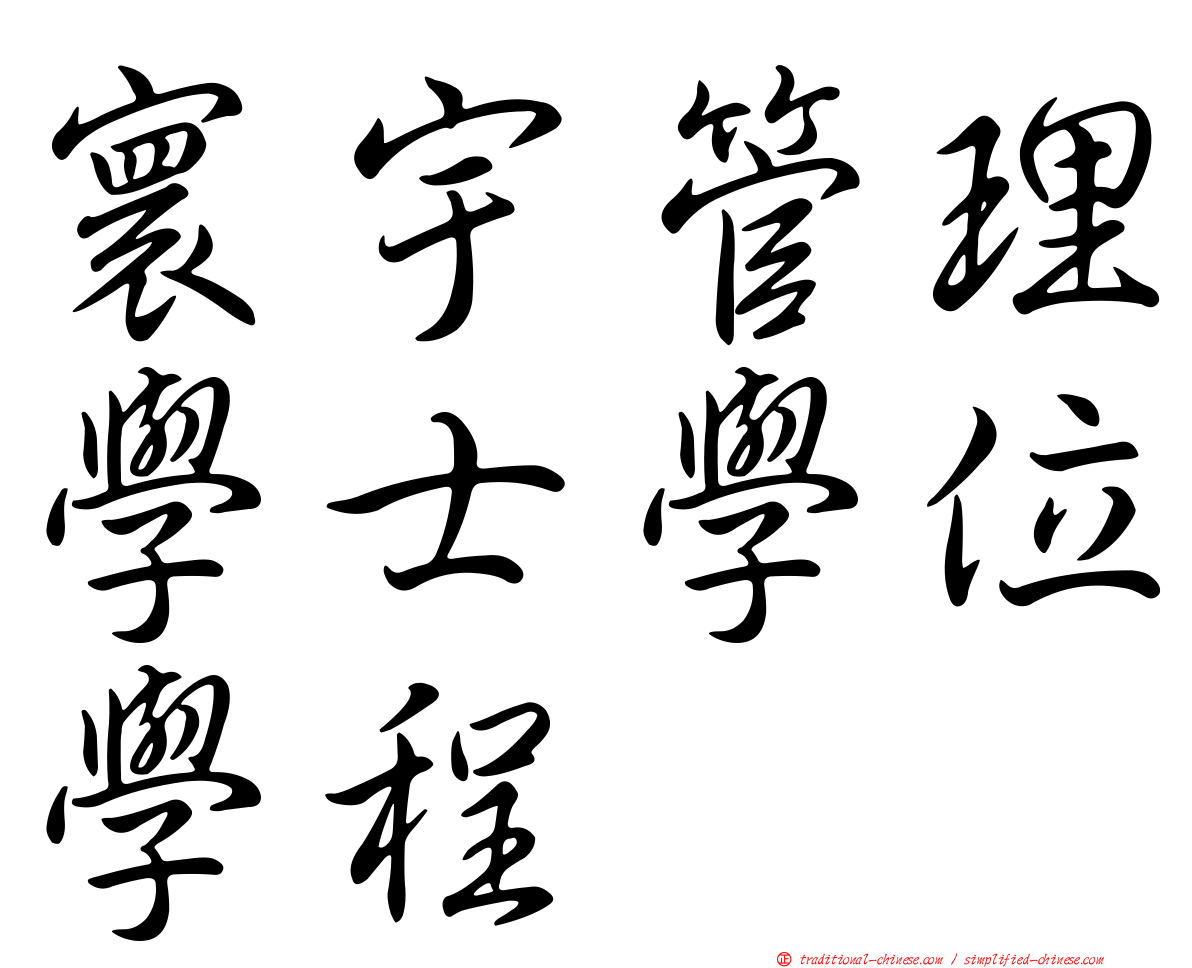 寰宇管理
學士學位
學程
㊣ traditional-chinese.com / simplified-chinese.com